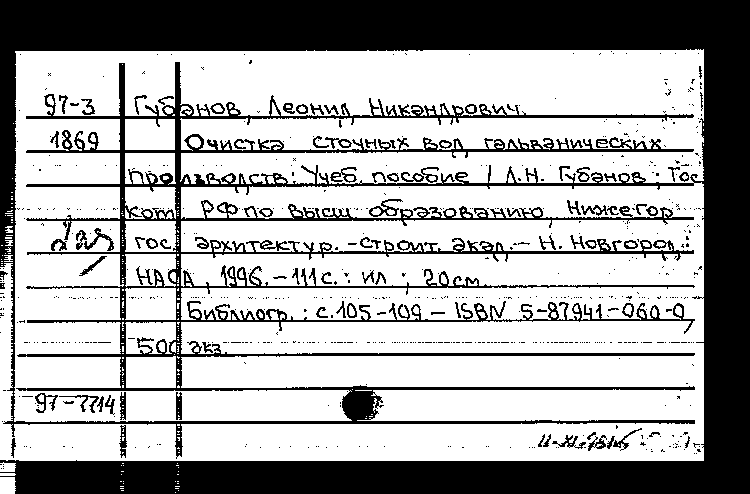 97-3 Губанов, Леонид Никандрович.
1869 Очистка сточных вод гальванических
производств: Учеб. пособие / Л.Н. Губанов ; Гос
ком РФ по высш образованию, Нижегор
гос. архитектур.-строит. акад. - Н. Новгород :
НАСА, 1996. - 111 с. : ил ; 20 см.
Библиогр. : с. 105-109 - ISBN 5-87941-060-0,
500 экз.
97-7714